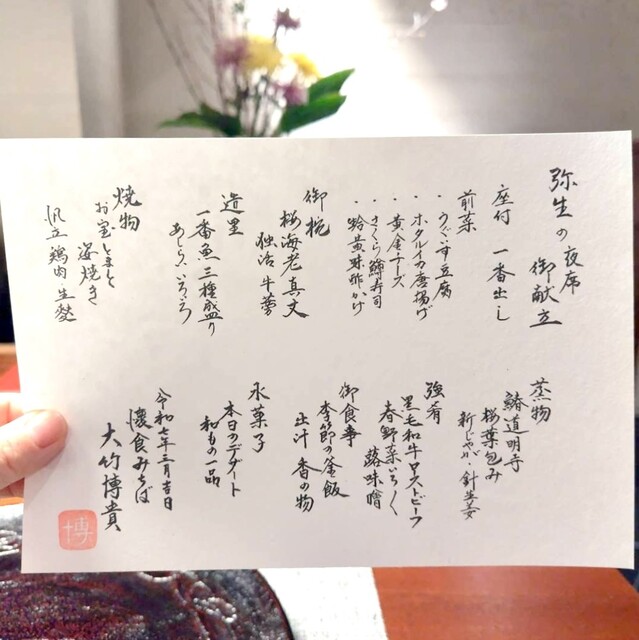 弥生の夜席
御献立
座付 一番出し
前菜
・うぐいす豆腐
・ホタルイカ唐揚げ
・黄金チーズ
・さくら鱒寿司
・蛤黄味酢かけ
御椀
桜海老真丈
独活 牛蒡
造里
一番魚三種盛り
あしらいいろいろ
焼物
お宝とまと
姿焼き
帆立 鶏肉・生麩
蒸物
鰆道明寺
桜葉包み
新じゃが・針生姜
強肴
黒毛和牛ローストビーフ
春野菜いろいろ
蕗味噌
御食事
季節の釜飯
出汁 香の物
水菓子
本日のデザート
和もの一品
令和七年三月吉日
懐食みちば
大竹博貴
博